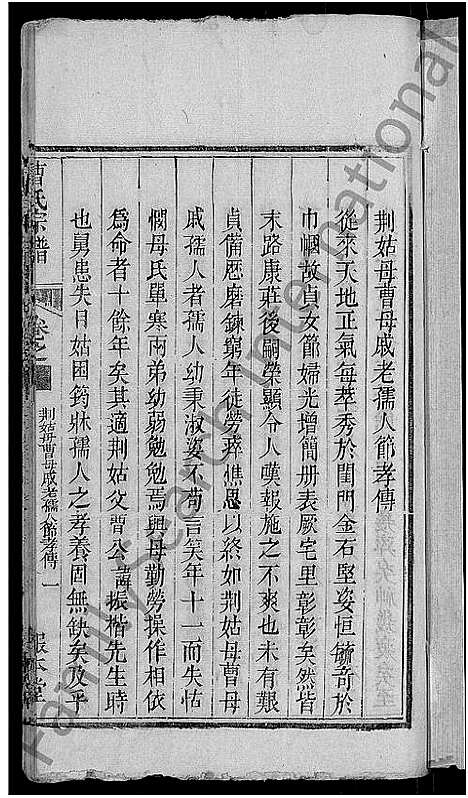 荆姑母曹母戚老孺人節孝傳
從來天地正氣每萃秀於閨門金石堅姿恒毓竒於
巾幗故貞女節婦光增簡册表厥宅里彰彰矣然皆
末路康莊後嗣榮顯令人嘆報施之不爽也未有艱
貞備歷磨鍊窮年徒勞瘁憔思以終如荆姑母曹母
戚孺人者孺人幼秉淑姿不茍言笑年十一而失怙
憫母氏單寒兩弟幼弱勉勉焉與母勤勞操作相依
爲命者十餘年矣其適荆姑父曹公諱振楷先生時
也舅患失目姑困箹牀孺人之孝養固無缺矣及乎
曹氏宗譜
卷之一
荆姑母曹母戚老孺人節孝傳
一
Family Search International